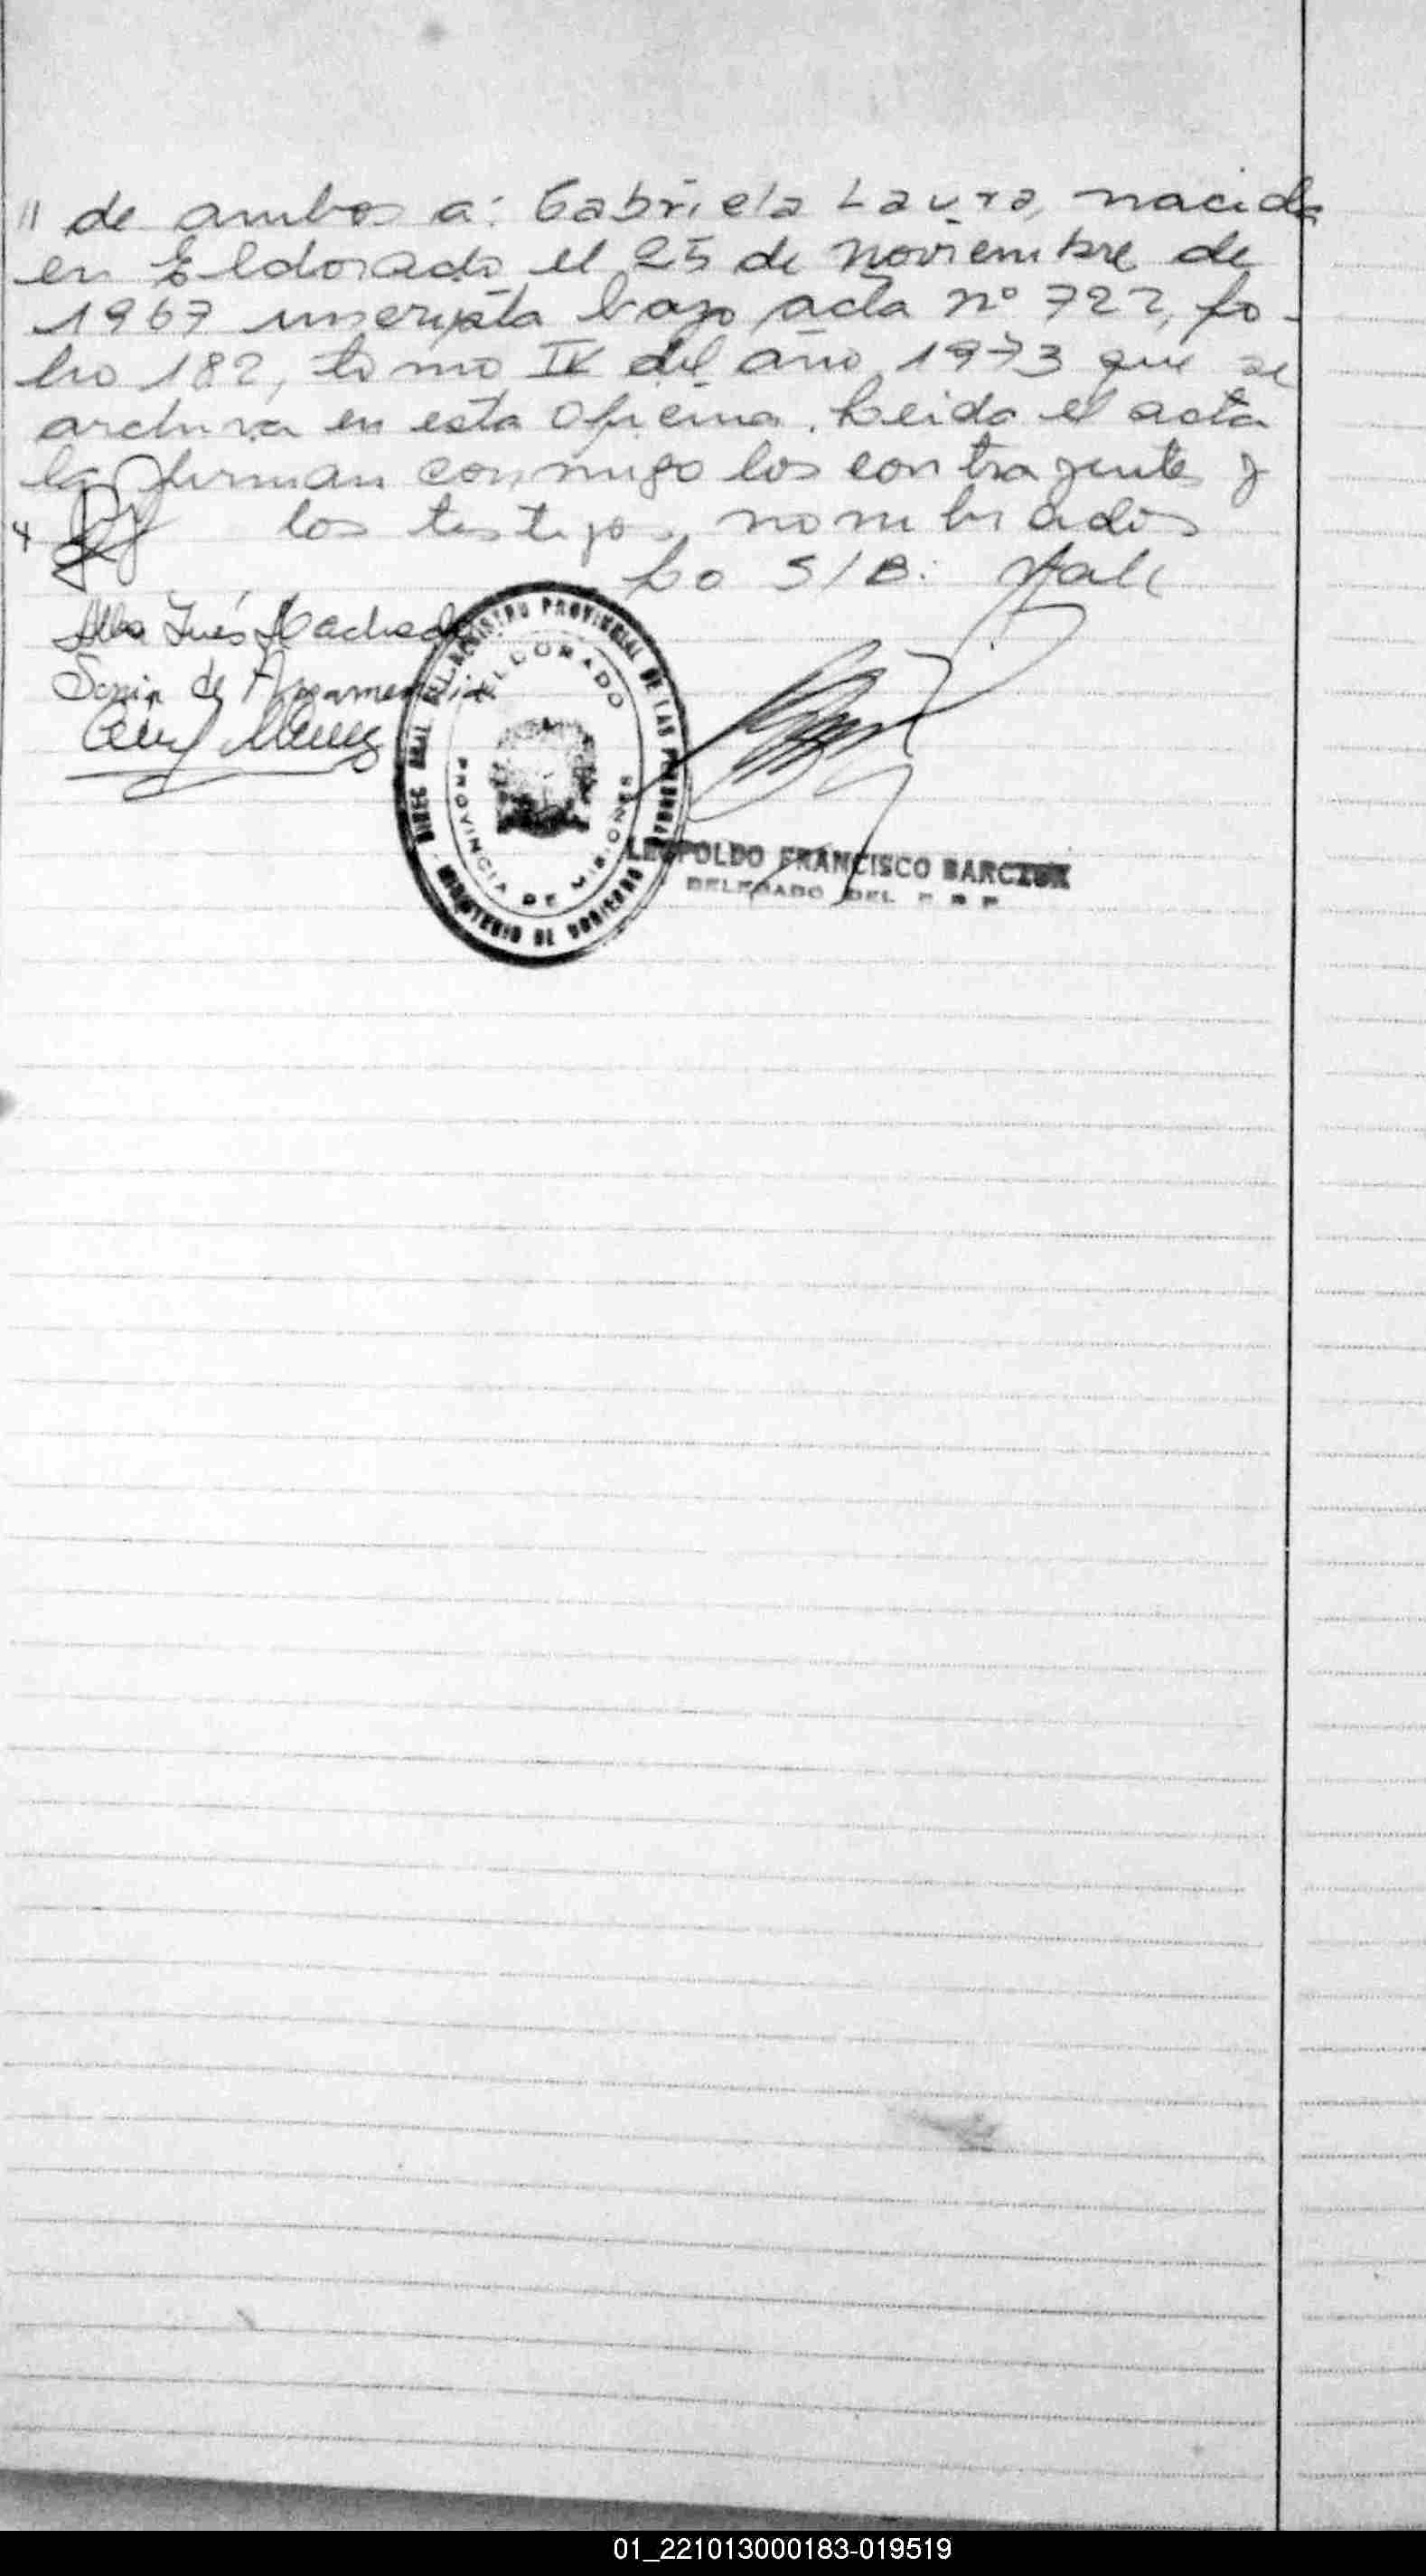 // de ambos a: Gabriela Laura, nacida
en Eldorado el 25 de noviembre de
1967 inscripta bajo acta nº 722, fo-
lio 182, tomo IV del año 1973 que se
archiva en esta Oficina. Leida el acta
la firman conmigo los contrayentes y
los testigos nombrados
Lo S/B: Vale
Alba Inés Machado
Sonia de Arzamendia
DIREC GRAL DEL REGISTRO PROVINCIAL DE LAS PERSONAS
ELDORADO
PROVINCIA DE MISIONES
MINISTERIO DE GOBIERNO
LEOPOLDO FRANCISCO BARCZUK
DELEGADO DEL R P P
01_221013000183-019519